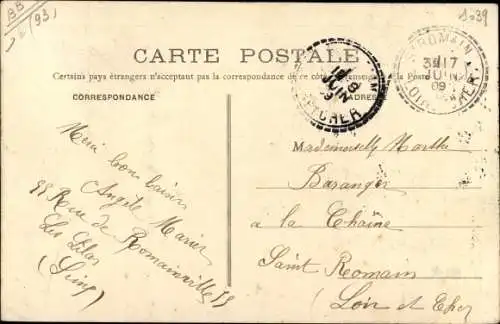 BB
(93)
1039
CARTE POSTALE
Certains pays étrangers n'acceptant pas la correspondance de ce côté, (se renseigner à la Poste
CORRESPONDANCE
ADRES
ROMAIN
17
JUIN
09
CHER
JUIN
09
ET CHER
bon baiser
Angèle Marier
98 Rue de Romainville 98
Les Lilas
(Seine)
Mademoiselle Marthe
Baranger
a la Chaîne
Saint Romain
(Loir et Cher